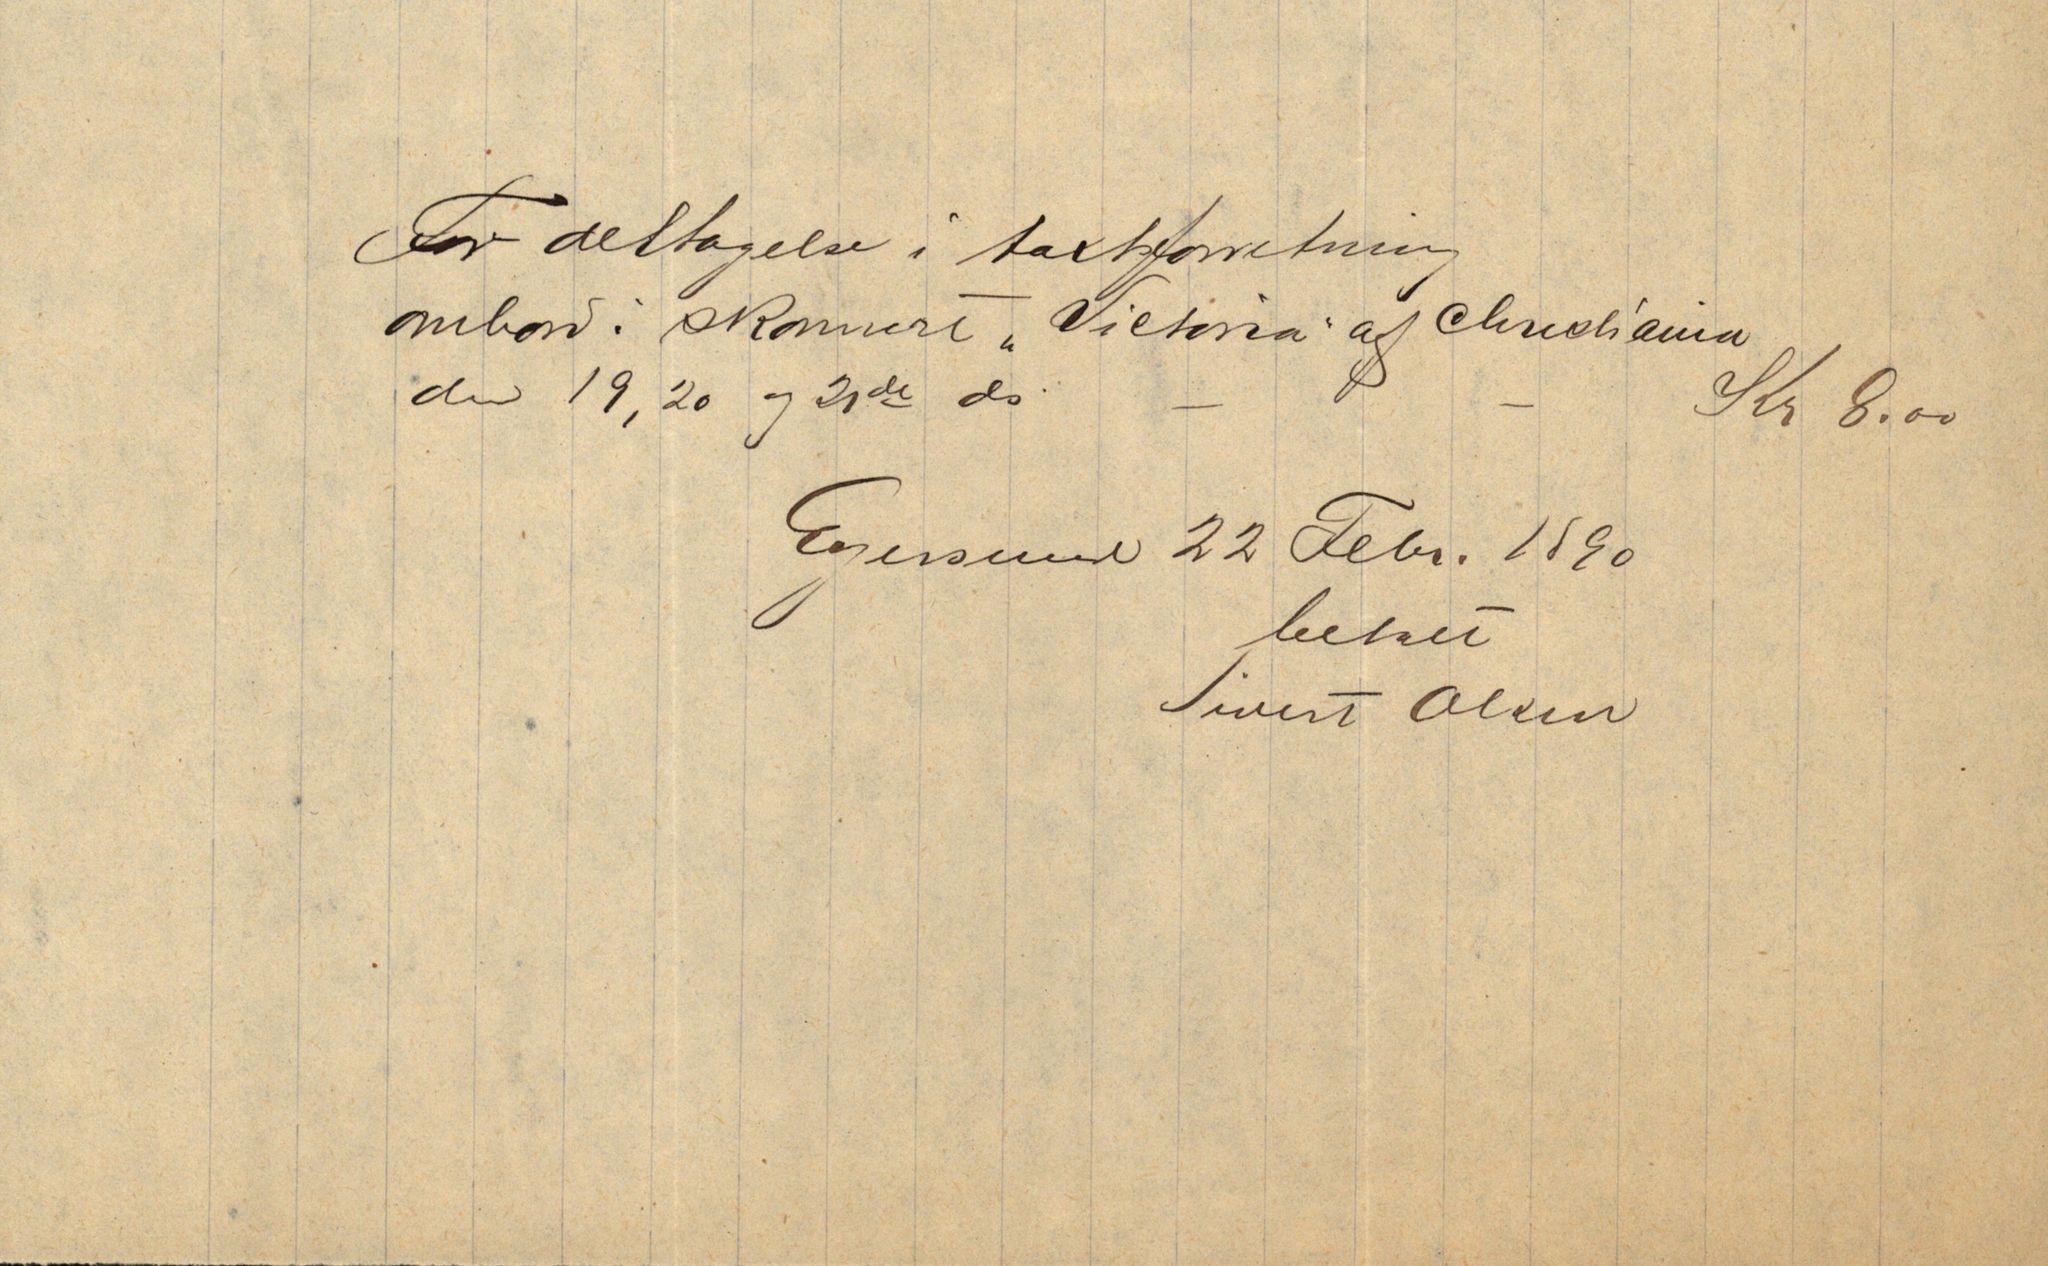 For deltagelse i taxtforretning
ombord i skonnert „Victoria“ af Christiania
den 19, 20 og 21de ds — — Kr 8.00
Egersund 22 Febr. 1890
betalt
Sivert Olsen